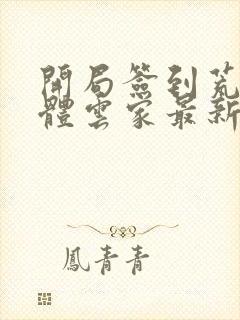 開局簽到荒
體雲家最新
鳳青青